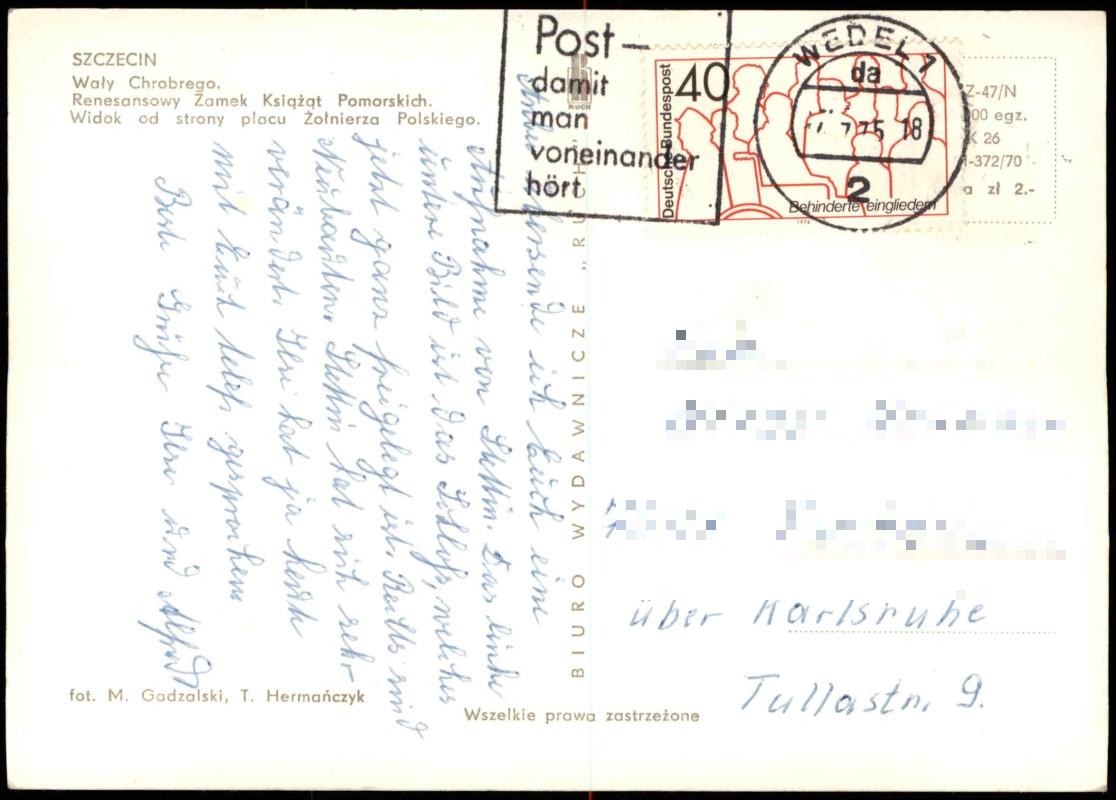 SZCZECIN
Wały Chrobrego.
Renesansowy Zamek Książąt Pomorskich.
Widok od strony placu Żołnierza Polskiego.
Post –
damit
man
voneinander
hört
Deutsche Bundespost
40
Behinderte eingliedern
1974
WEDEL 1
da
7.75 18
2
Z-47/N
00 egz.
K 26
-372/70
a zł 2.-
RUCH
BIURO WYDAWNICZE „RUCH”
übersende ich Euch eine
Aufnahme von Stettin. Das linke
untere Bild ist das Schloß, welches
jetzt ganz freigelegt ist. Rechts sind
Neubauten. Stettin hat sich sehr
verändert. Ilse hat ja heute
mit Euch telef. gesprochen.
Beste Grüße Ilse und Alfred
über Karlsruhe
Tullastr. 9.
fot. M. Gadzalski, T. Hermańczyk
Wszelkie prawa zastrzeżone